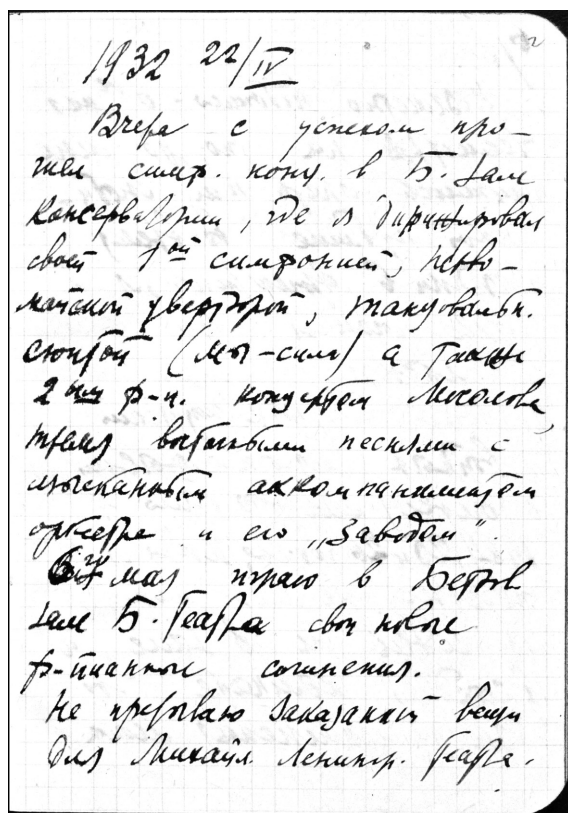 2
1932 22/IV
Вчера с успехом про-
шел симф. конц. в Б. зале
консерватории, где я дирижировал
своей 1ой симфонией, перво-
майской увертюрой, танцовальн.
сюитой (мы-сила) а также
2ым ф-п. концертом Мосолова,
тремя восточными песнями с
изысканным аккомпаниментом
оркестра и его „Заводом".
мая играю в Бетхов
зале Б. Театра свои новые
ф-пианные сочинения.
Не прерываю заказанной вещи
для Михайл. Ленингр. Театра.